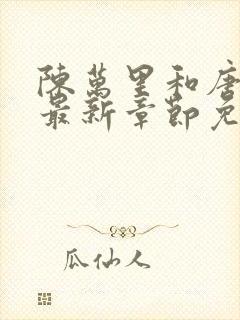 陳萬里和唐
最新章節免
瓜仙人